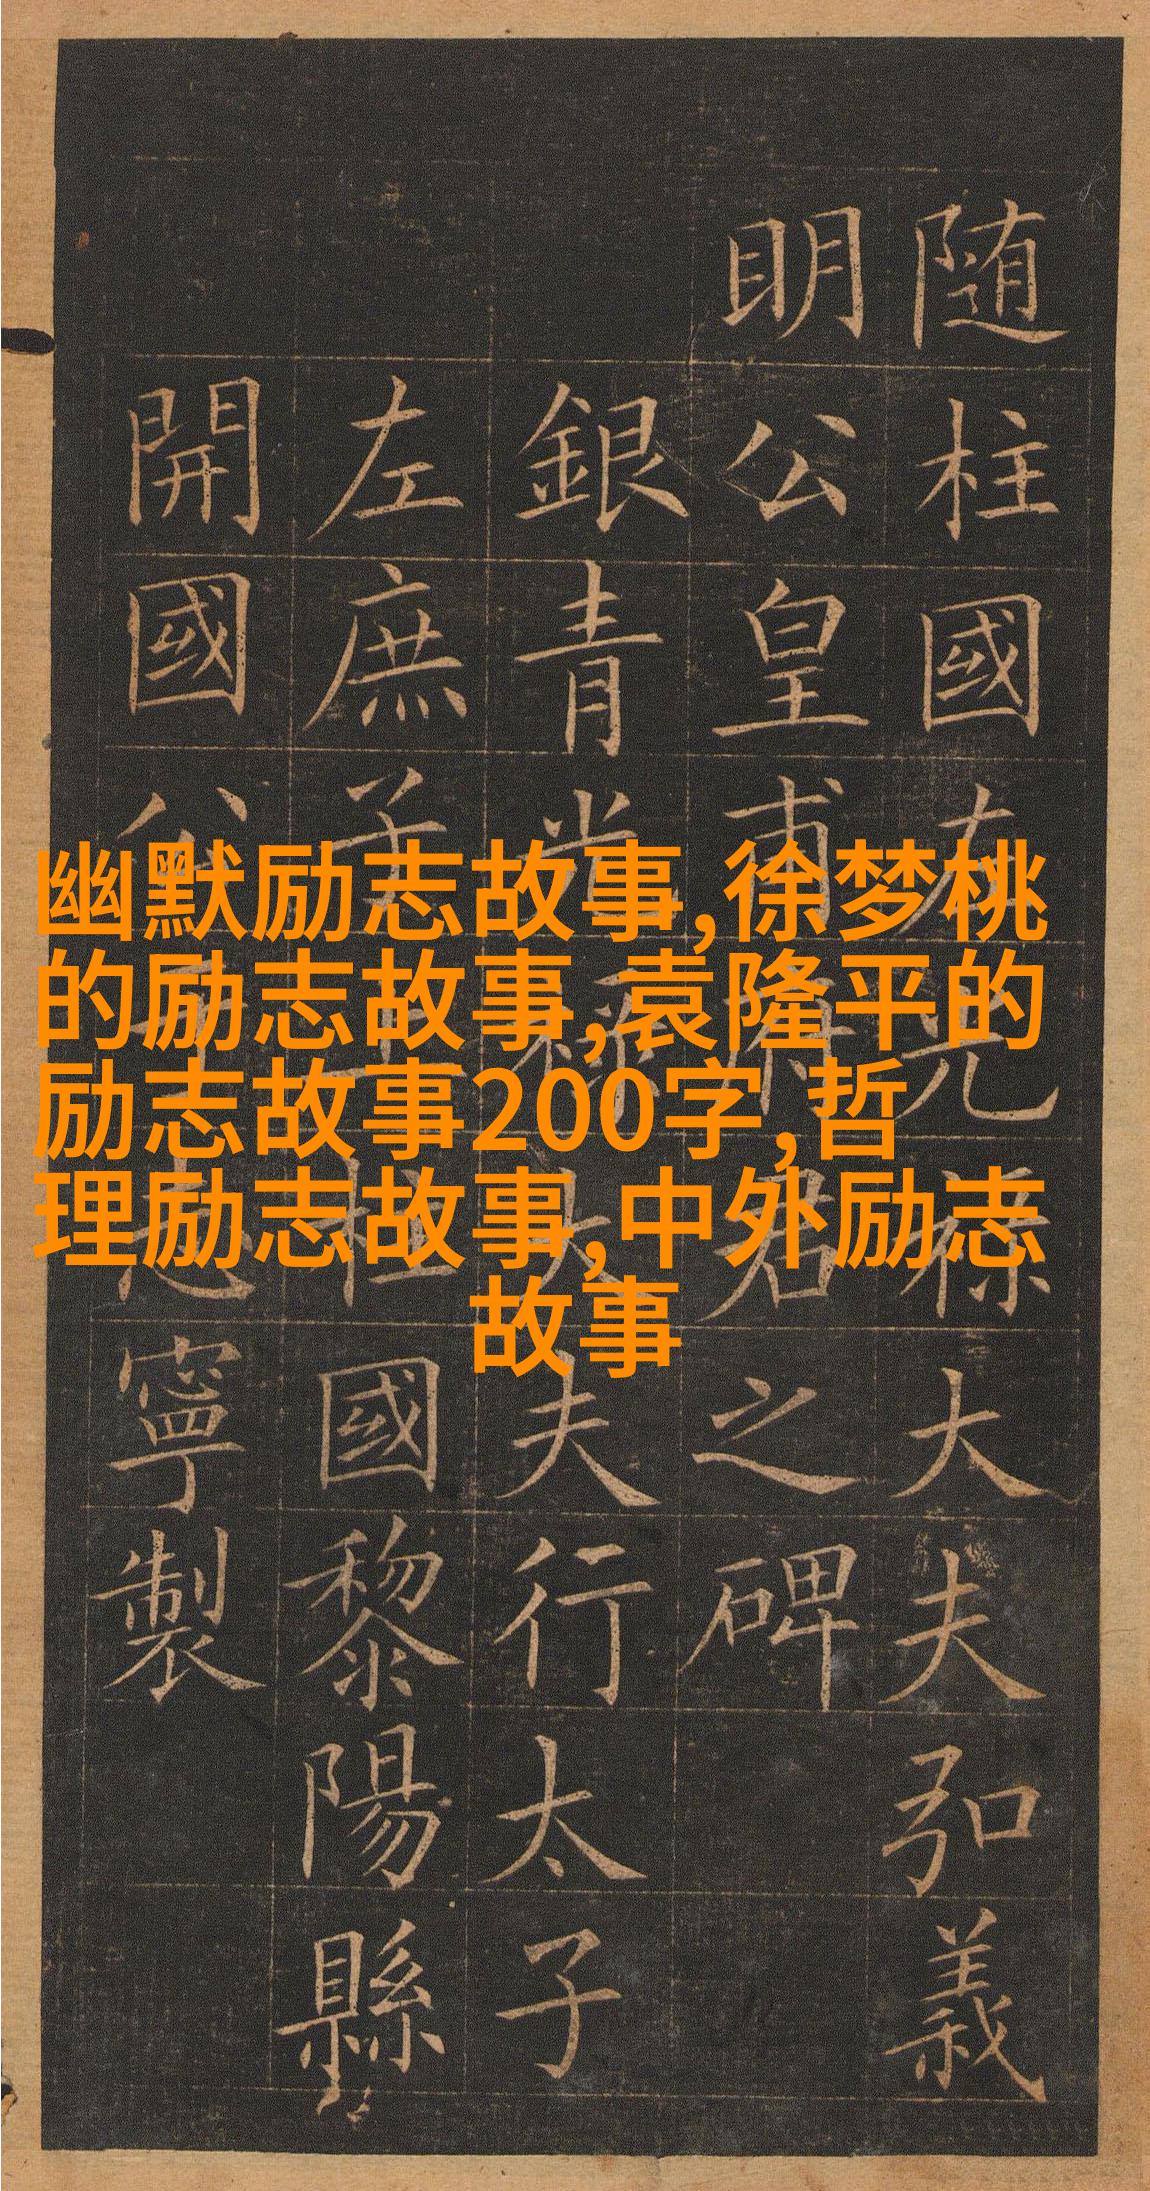 随柱國左光祿大夫弘義
明公皇甫府君之碑
銀青光祿大夫行太子
左庶子上柱國黎陽縣
開國公于志寧製
幽默励志故事,徐梦桃
的励志故事,袁隆平的
励志故事200字,哲
理励志故事,中外励志
故事